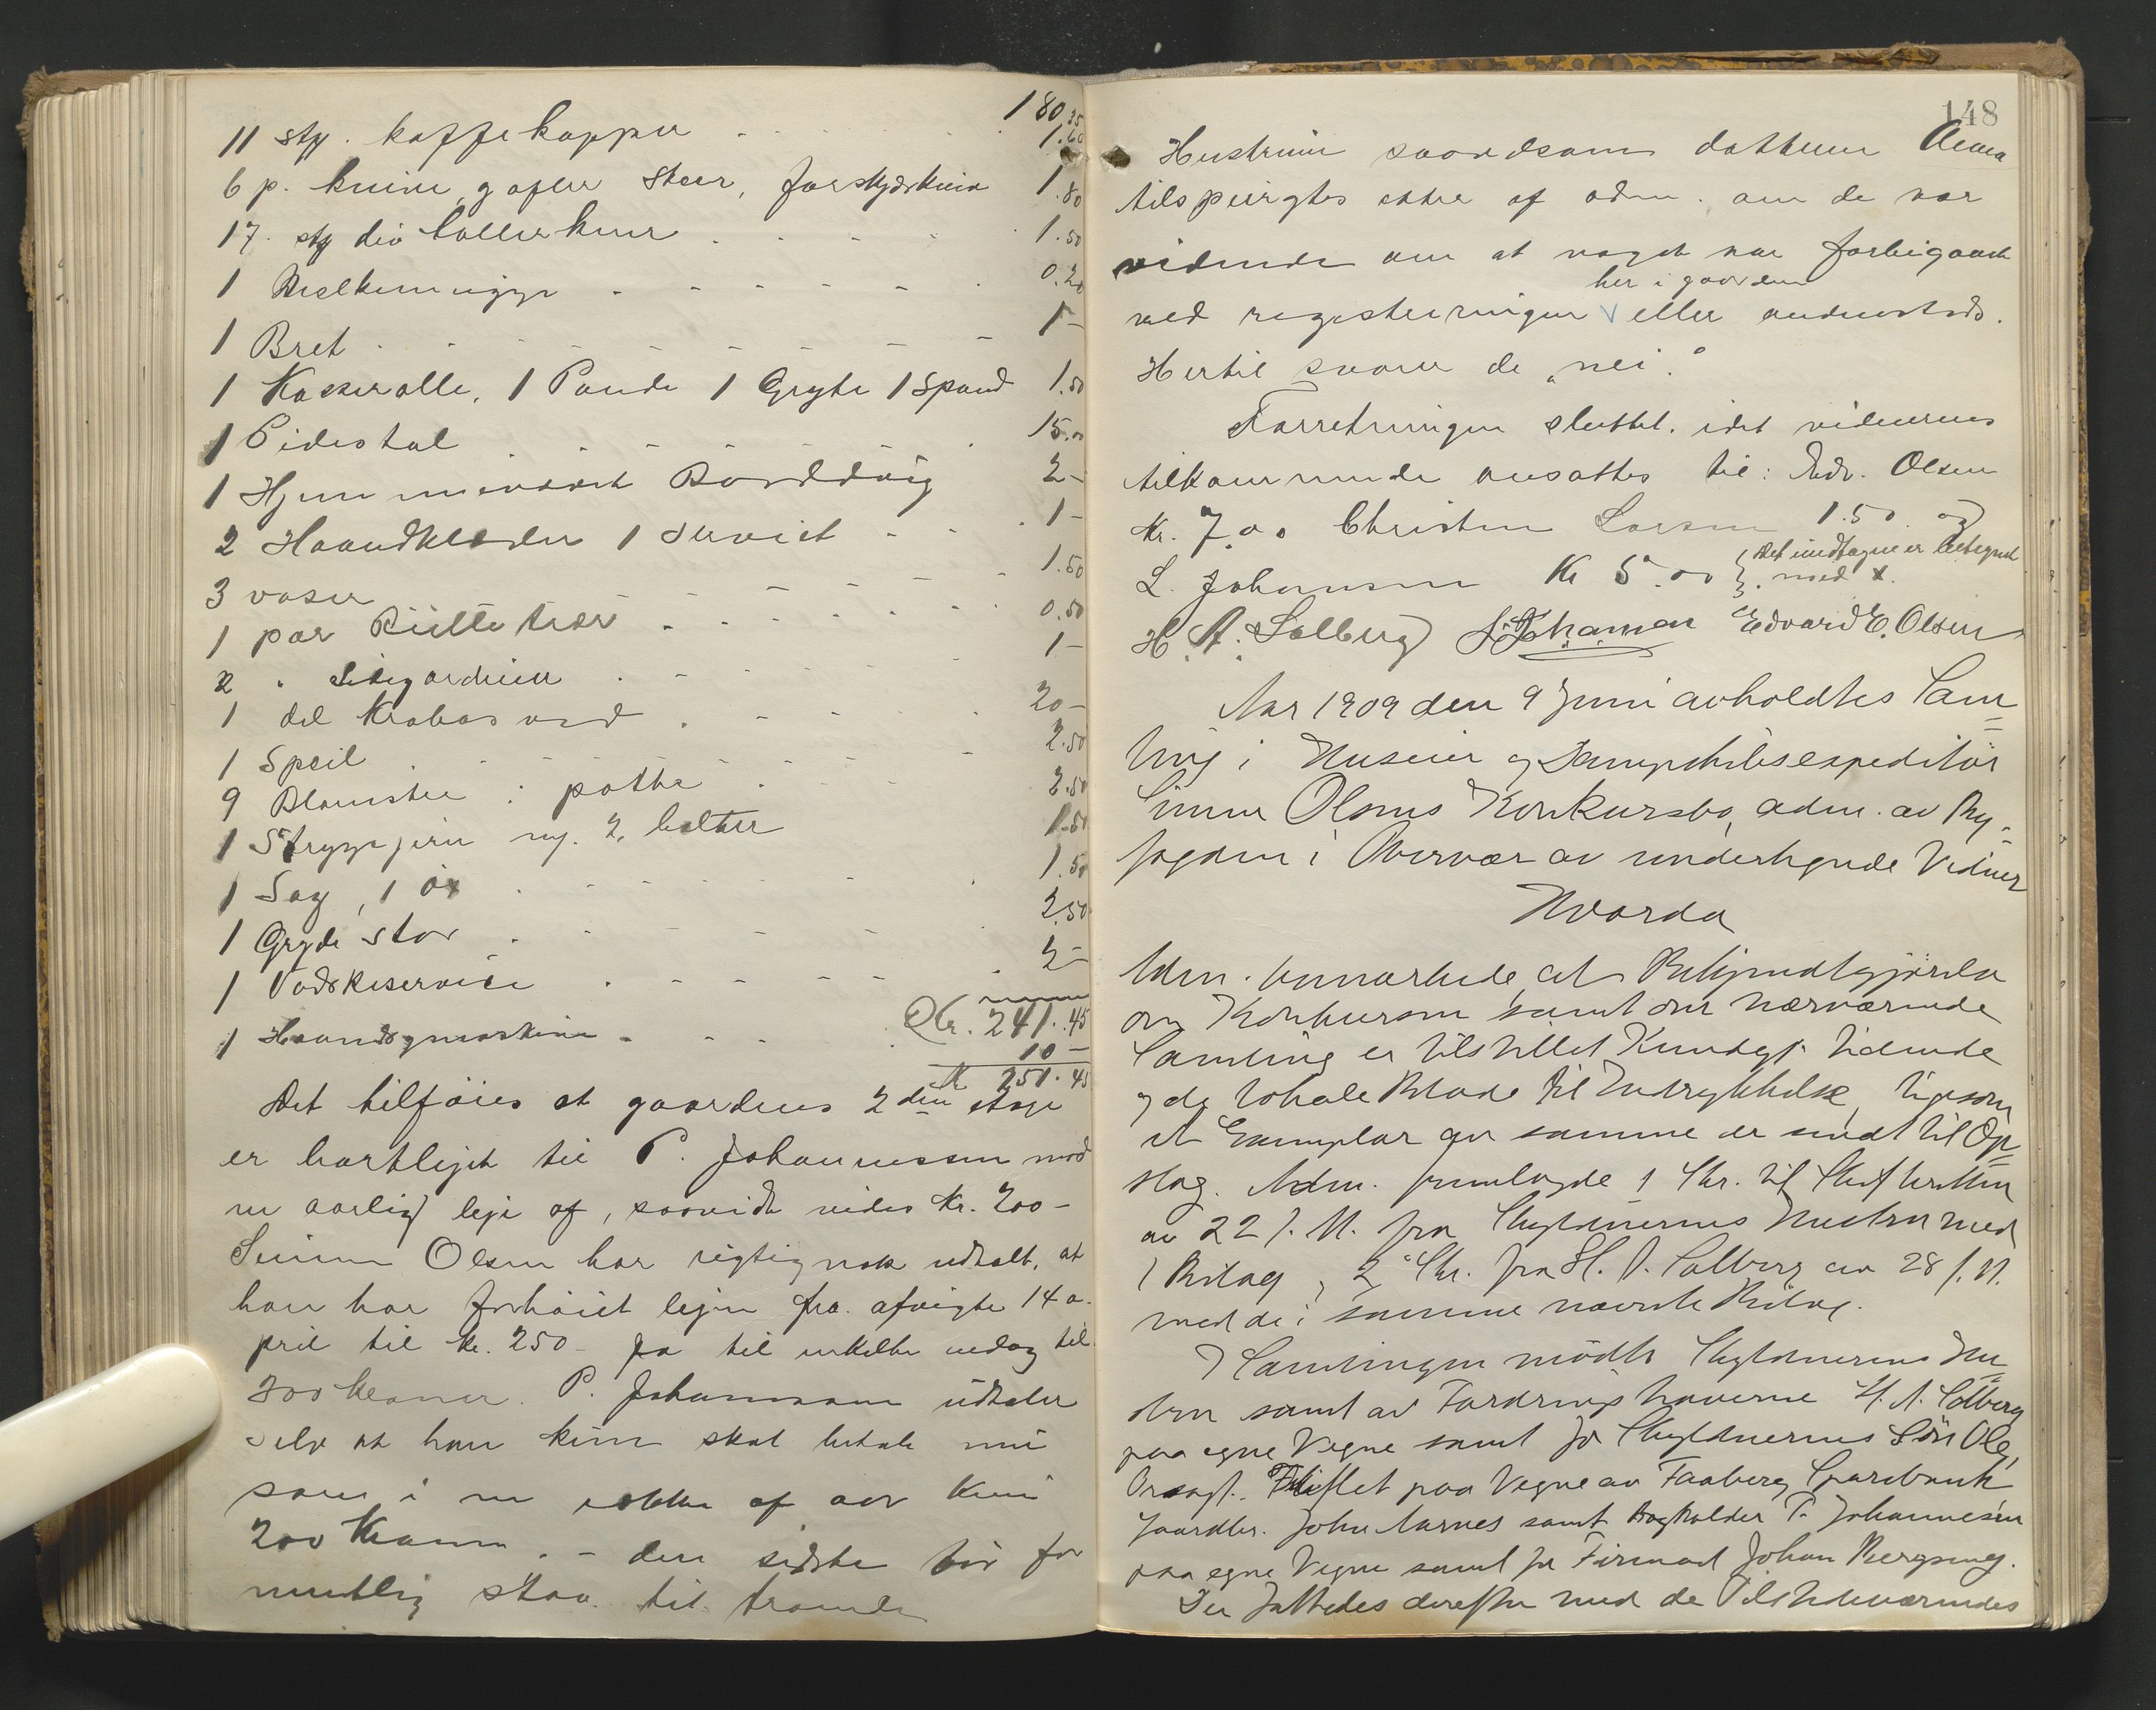 180.35
11 stk. kaffekopper . . . 1.60
6 p. knive, gafler skeer, forskjærkniv 1.80
17 stk div tallerkener . . . 1.50
1 Melkemugge - - - - - 0.20
1 Bret - - - - - - 1 -
1 Kasserolle, 1 Pande 1 Gryte 1 Spand 1.50
1 Pidestal - - - 15.00
1 Hjemmevævet Borddug 2 -
2 Haandklæder 1 serviet - - 1 -
3 vaser - - - - 1.50
1 par Rulletrær - - - 0.50
2 " Sidegardiner . - - 1 -
1 del Krabasved . - - 20 -
1 Speil . - - - 2.50
9 Blomster i potter . - - 2.50
1 Strygejern m/ 2 bolter 1.50
1 Sag, 1 öx . - - - 1.50
1 Gryde stor . - - - 2.50
1 Vadskeservise . - - - 2 -
1 Haandsymaskine - - - Kr. 241.45
10 -
Kr 251.45
Det tilføies at gaardens 2den etage
er bortlejet til P. Johannessen mod
en aarlig leje af, saavidt vides Kr. 200 -
Simen Olsen har rigtignok udtalt, at
han har forhöiet lejen fra afvigte 14 a-
pril til Kr. 250 - ja til enkelte endog til
300 kroner. P. Johannessen udtaler
selv at han kun skal betale nu
som i en række af aar kun
200 Kroner. - den sidste bør for
mentlig staa til troende
148
Hustruen saavelsom datteren Anna
tilspurgtes etter af adm. om de var
vidende om at noget var forbigaaet
her i gaarden
ved registreringen V eller andensteds.
Hertil svarer de "nei."
Forretningen sluttet. idet vidnernes
tilkommende ansattes til: Edv. Olsen
Kr. 7.00 Christen Larsen 1.50 og
L. Johansen Kr 5.00 } Det undtagne er betegnet
med x.
H. A. Solberg L Johansen Edvard E. Olsen
Aar 1909 den 9 Juni avholdtes Sam
ling i Huseier og Dampskibsexpeditör
Simen Olsens Konkursbo, adm. av By-
fogden i Overvær av undertegnede Vidner
Hvorda
Adm. bemærkede, at Bekjendtgjörelse
om Konkursen samt om nærværende
Samling er tilstillet Kundgj. tidende
og de lokale Blade til Indrykkelse, ligesom
et Exemplar av samme er sendt til Op
slag. Adm. fremlagde 1 Skr. til Skifteretten
av 22 f. M. fra Skyldnerens Hustru med
1 Bilag, 2 Skr. fra H. A. Solberg av 28 f. M.
med de i samme nævnte Bilag.
I Samlingen mödte Skyldnerens Hu
stru samt av Fordringshaverne H. A. Solberg
paa egne Vegne samt for Skyldnerens Sön Ole,
Orsagf. Fliflet paa Vegne av Faaberg Sparebank
Gaardbr. John Aarnes samt Bogholder P. Johannesen
paa egne Vegne samt for Firmaet Johan Bergseng.
Der fattedes derefter med de Tilstedeværendes